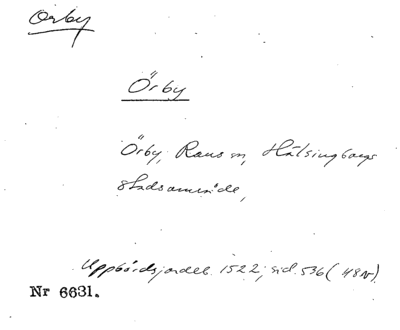 Örby
Örby
Örby, Raus sn, Hälsingborgs
stadsområde,
Uppbördsjordeb. 1522, sid. 536 (48
Nr 6631.